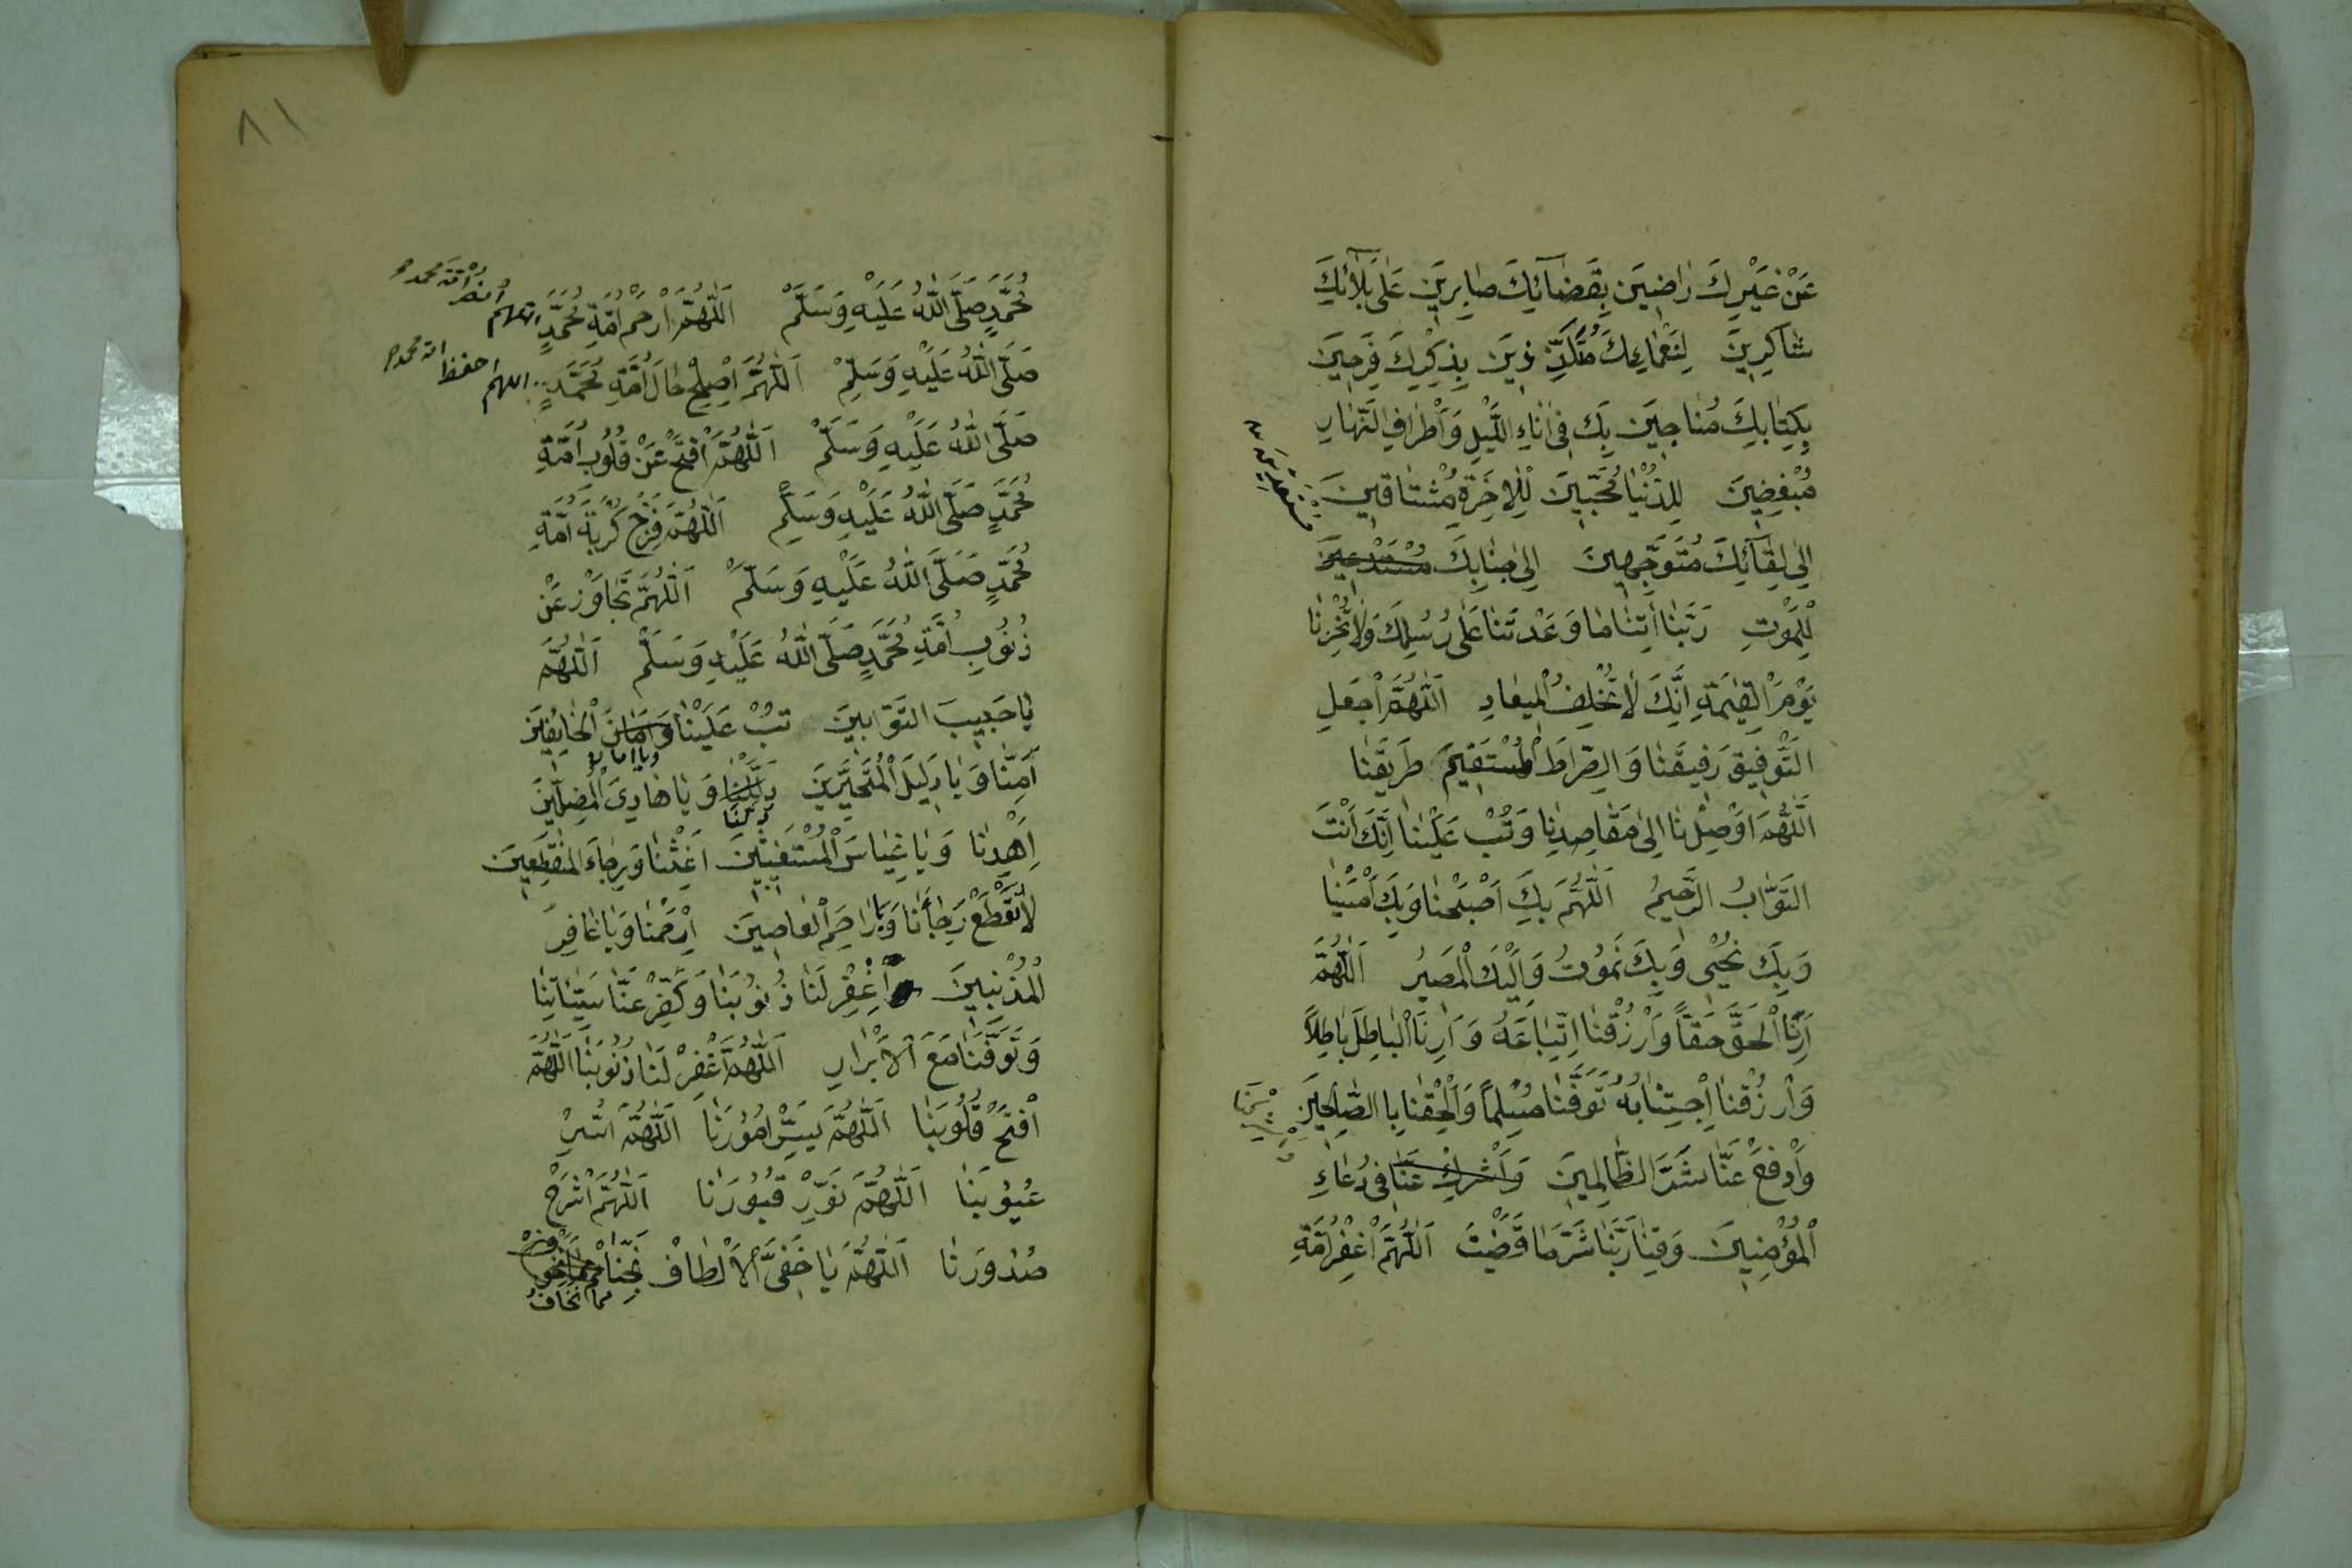 عَنْ غَيْرِكَ رَاضِيَن بِقَضَآئِكَ صَابِرِيَن عَلٰى بَلَآئِكَ
شَاكِرِينَ لِنَعْمَائِكَ مُتَلَذِّذِينَ بِذِكْرِكَ فَرِحِينَ
بِكِتَابِكَ مُنَاجِينَ بِكَ فِى اٰنَاءِ اللَّيْلِ وَاَطْرَافِ النَّهَارِ
مُبْغِضِينَ لِلدُّنْيَا مُحِبِّينَ لِلْاٰخِرَةِ مُشْتَاقِينَ
اِلٰى لِقَآئِكَ مُتَوَجِّهِينَ اِلٰى جَنَابِكَ مُسْتَدْعِينَ
مستعدين
لِلْمَوْتِ رَبَّنَا اٰتِنَا مَا وَعَدْتَنَا عَلٰى رُسُلِكَ وَلَا تُخْزِنَا
يَوْمَ الْقِيٰمَةِ اِنَّكَ لَا تُخْلِفُ الْمِيعَادِ اَللّٰهُمَّ اجْعَلِ
التَّوْفِيقَ رَفِيقَنَا وَالصِّرَاطَ الْمُسْتَقِيمَ طَرِيقَنَا
اَللّٰهُمَّ اَوْصِلْنَا اِلٰى مَقَاصِدِنَا وَتُبْ عَلَيْنَا اِنَّكَ اَنْتَ
التَّوَّابُ الرَّحِيمُ اَللّٰهُمَّ بِكَ اَصْبَحْنَا وَبِكَ اَمْسَيْنَا
وَبِكَ نَحْيٰى وَبِكَ نَمُوتُ وَاِلَيْكَ الْمَصِيرُ اَللّٰهُمَّ
اَرِنَا الْحَقَّ حَقًّا وَارْزُقْنَا اِتِّبَاعَهُ وَاَرِنَا الْبَاطِلَ بَاطِلًا
وَارْزُقْنَا اِجْتِنَابَهُ تَوَفَّنَا مُسْلِمًا وَاَلْحِقْنَا بِا الصَّالِحِينَ
وَادْفَعْ عَنَّا شَرَّ الظَّالِمِينَ وَاَشْرِكْ عَنَّا فِى دُعَاءِ
الْمُؤْمِنِينَ وَقِنَا رَبَّنَا شَرَّ مَا قَضَيْتَ اَللّٰهُمَّ اغْفِرْ اُمَّةِ
٨١
مُحَمَّدٍ صَلَّى اللّٰهُ عَلَيْهِ وَسَلَّمْ اَللّٰهُمَّ ارْحَمْ اُمَّةِ مُحَمَّدٍ اللهم انصر امة محمد
صَلَّى اللّٰهُ عَلَيْهِ وَسَلِّمْ اَللّٰهُمَّ اَصْلِحْ حَالَ اُمَّةِ مُحَمَّدٍ اللهم احفظ امة محمد
صَلَّى اللّٰهُ عَلَيْهِ وَسَلَّمْ اَللّٰهُمَّ افْتَحْ عَنْ قُلُوبِ اُمَّةِ
مُحَمَّدٍ صَلَّى اللّٰهُ عَلَيْهِ وَسَلِّمْ اَللّٰهُمَّ فَرِّجْ كُرْبَةَ اُمَّةِ
مُحَمَّدٍ صَلَّى اللّٰهُ عَلَيْهِ وَسَلَّمْ اَللّٰهُمَّ تَجَاوَزْ عَنْ
ذُنُوبِ اُمَّةِ مُحَمَّدٍ صَلَّى اللّٰهُ عَلَيْهِ وَسَلَّمْ اَللّٰهُمَّ
يَا حَبِيبَ التَّوَّابِينَ تُبْ عَلَيْنَا وَامَانَ الْخَائِفِينَ
ويا امان
اٰمِنَّا وَيَا دَلِيلَ الْمُتَحَيِّرِينَ دَلِّنَا وَيَا هَادِىَ الْمُضِلِّينَ
دلنا
اِهْدِنَا وَيَا غِيَاسَ الْمُسْتَغِيثِينَ اَغِثْنَا وَيَرجَاءَ الْمُنْقَطِعِينَ
لَا تَقْطَعْ رَجَاءَنَا وَيَا رَاحِمَ الْعَاصِينَ اِرْحَمْنَا وَيَا غَافِرَ
الْمُذْنِبِينَ اغْفِرْ لَنَا ذُنُوبَنَا وَكَفِّرْ عَنَّا سَيِّئَاتِنَا
وَتَوَفَّنَا مَعَ الْاَبْرَارِ اَللّٰهُمَّ اغْفِرْ لَنَا ذُنُوبَنَا اَللّٰهُمَّ
افْتَحْ قُلُوبَنَا اَللّٰهُمَّ يَسِّرْ اُمُورَنَا اَللّٰهُمَّ اسْتُرْ
عُيُوبَنَا اَللّٰهُمَّ نَوِّرْ قُبُورَنَا اَللّٰهُمَّ اشْرَحْ
صُدُورَنَا اَللّٰهُمَّ يَا خَفِىَّ الْاَلْطَافْ نَجِّنَا
مما نخاف